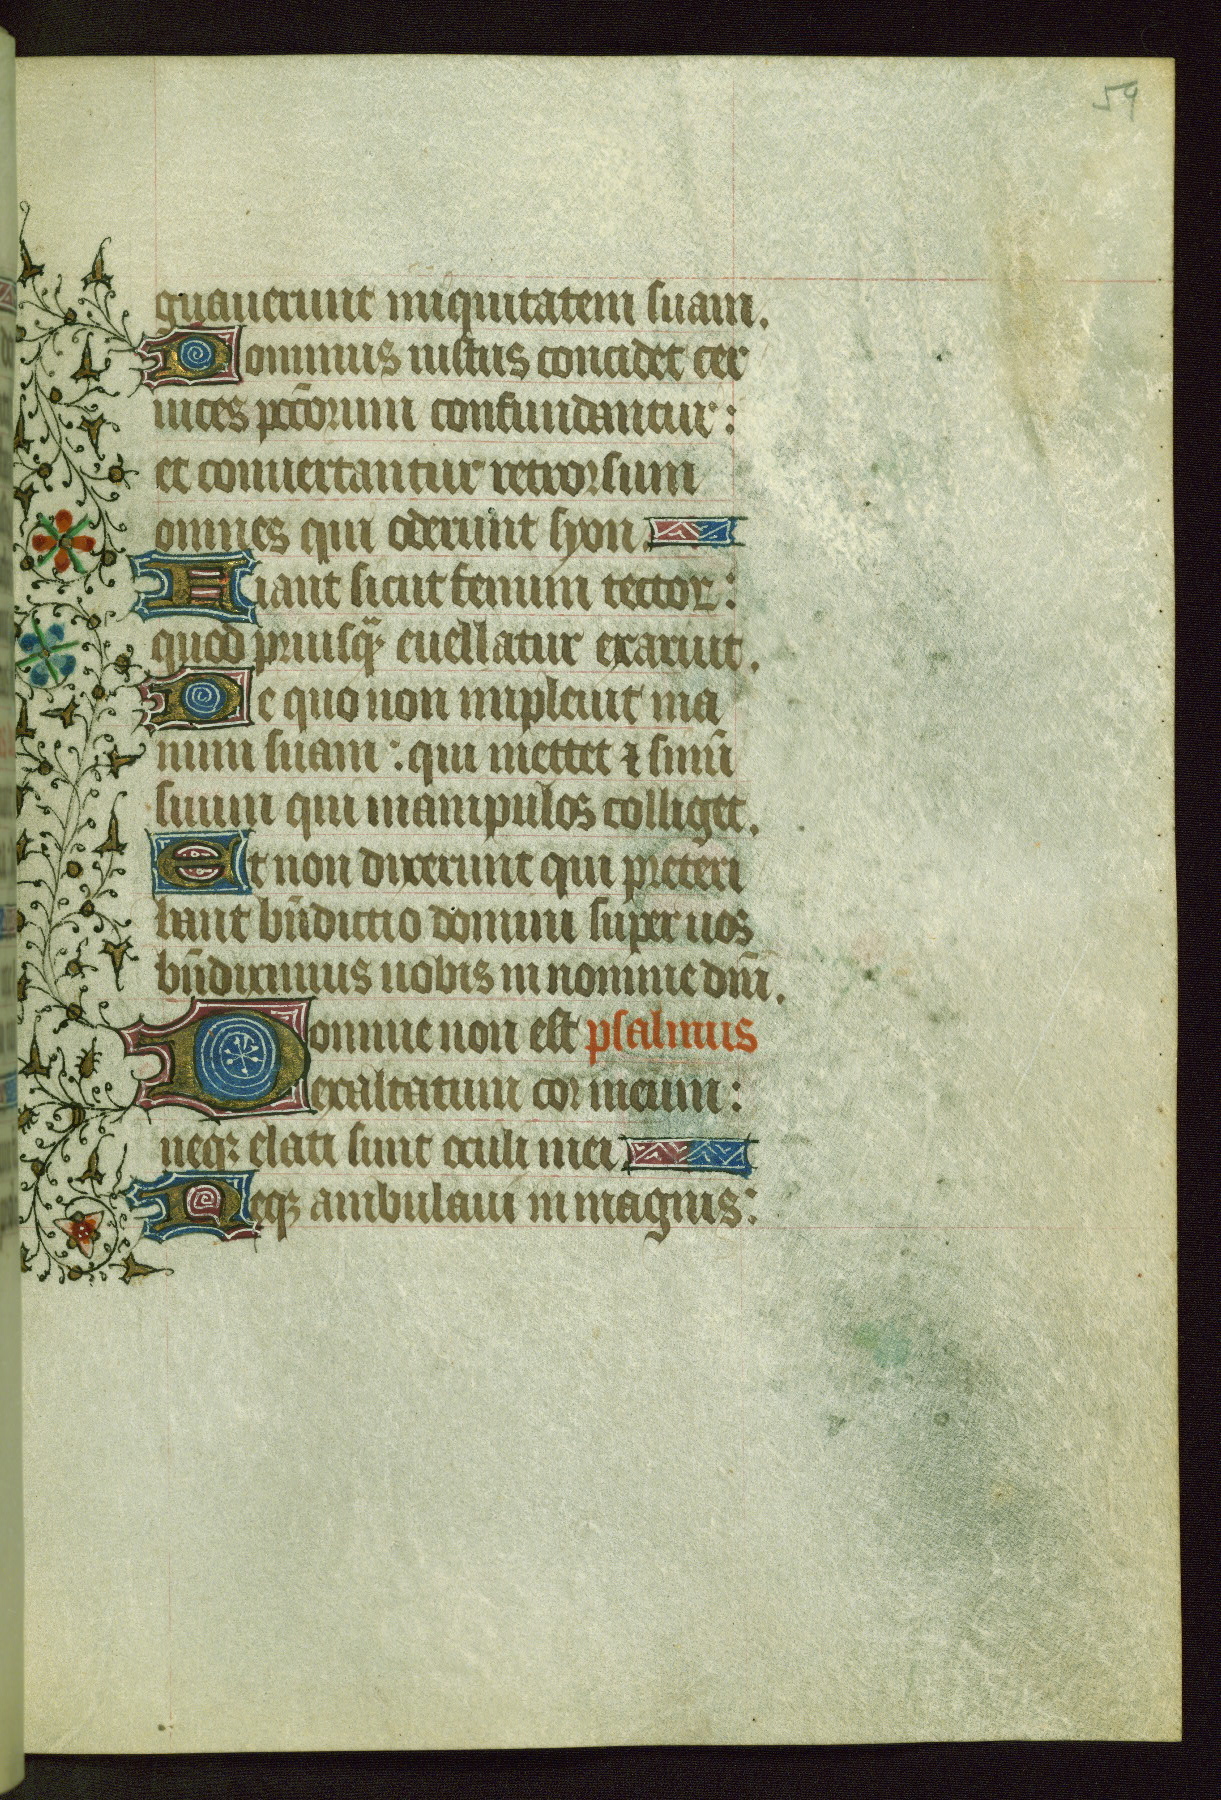 59
guauerunt iniquitatem suam.
Dominus iustus concidet cer
uices pccōrum confundantur:
et conuertantur retrorsum
omnes qui oderunt syon.
Fiant sicut fenum tectoꝝ:
quod priusqᷓ euellatur exaruit.
De quo non impleuit ma
num suam: qui mettet ⁊ sinū
suum qui manipulos colliget.
Et non dixerunt qui preteri
bant bn̄dictio domini super uos
bn̄diximus uobis in nomine dn̄i.
Domine non est psalmus
exaltatum cor meum:
neqꝫ elati sunt oculi mei
Neqꝫ ambulaui in magnis: